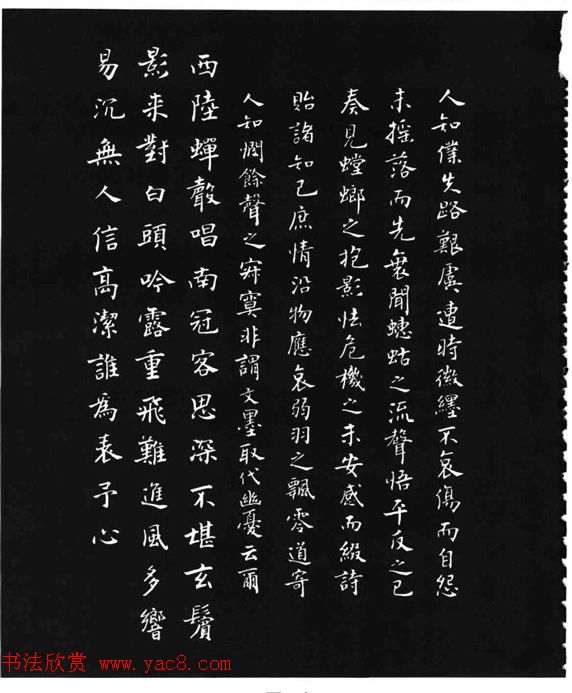 人知僕失路艱虞遭時徽纆不哀傷而自怨
未摇落而先衰聞蟪蛄之流聲悟平反之已
奏見螳螂之抱影怯危機之未安感而綴詩
貽諸知己庶情沿物應哀弱羽之飄零道寄
人知憫餘聲之寂寞非謂文墨取代幽憂云爾
西陸蟬聲唱南冠客思深不堪玄鬢
影来對白頭吟露重飛難進風多響
易沉無人信高潔誰為表予心
书法欣赏 www.yac8.com